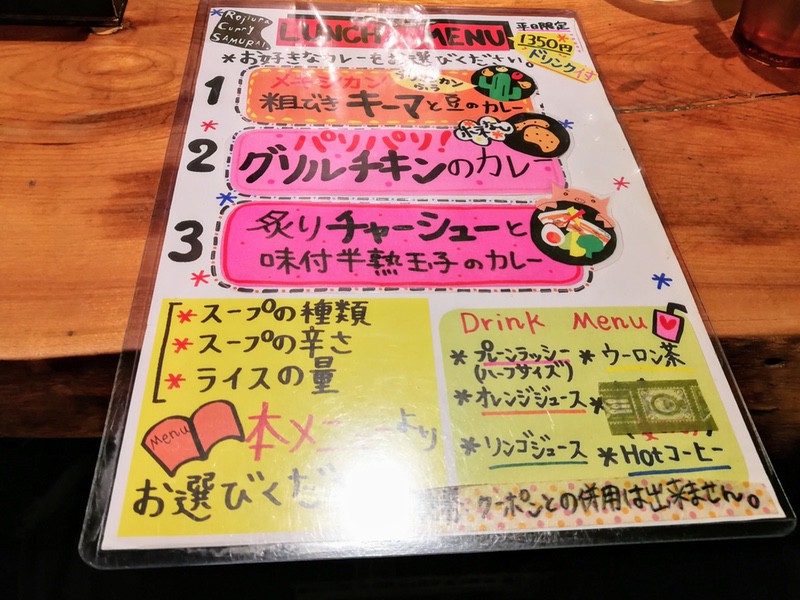 Rojiura
Curry
SAMURAI.
LUNCH MENU
平日限定
1350円
ドリンク付
*お好きなカレーをお選びください。
1
メキシカン!
粗びきキーマと豆のカレー
2
パリパリ!
グリルチキンのカレー
3
炙りチャーシューと
味付半熟玉子のカレー
*スープの種類
*スープの辛さ
*ライスの量
Menu
本メニューより
お選びくだ
Drink Menu
*プレーンラッシー
(ハーフサイズ)
*ウーロン茶
*オレンジジュース
*
*リンゴジュース
*Hotコーヒー
クーポンとの併用は出来ません。